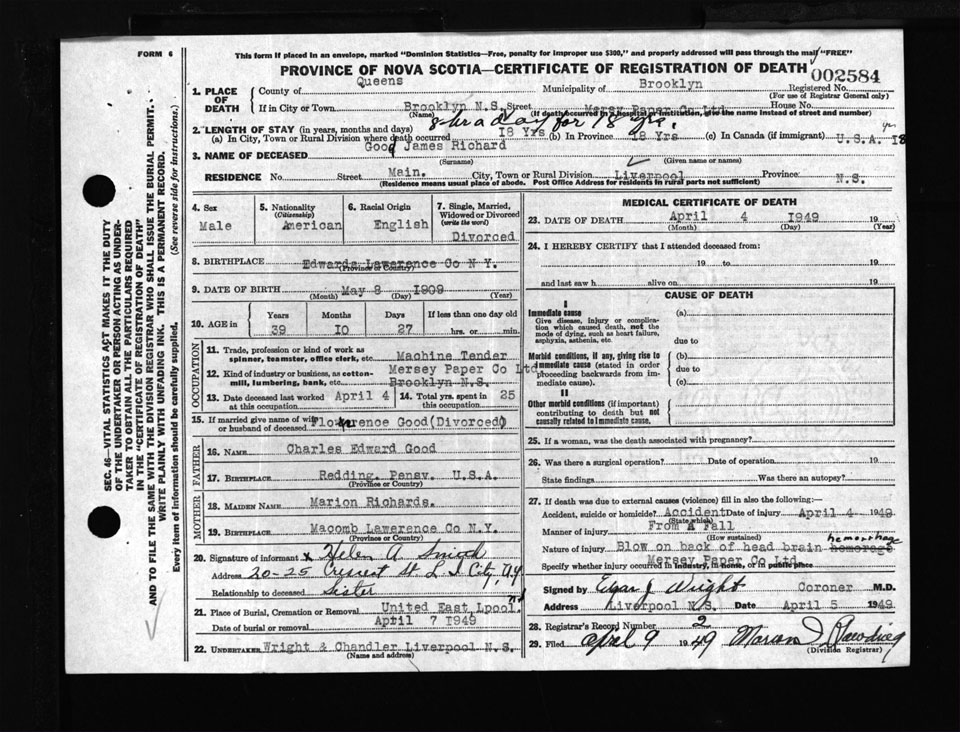 FORM 6
This form if placed in an envelope, marked "Dominion Statistics—Free, penalty for improper use $300," and properly addressed will pass through the mail "FREE"
PROVINCE OF NOVA SCOTIA—CERTIFICATE OF REGISTRATION OF DEATH
002584
1. PLACE OF DEATH
County of Queens Municipality of Brooklyn Registered No.
(For use of Registrar General only)
If in City or Town Brooklyn N.S. Street Mersey Paper Co Ltd House No.
(Name) (If death occurred in a hospital or institution, give the name instead of street and number)
8 hr a day for 18 yrs.
2. LENGTH OF STAY (in years, months and days)
(a) In City, Town or Rural Division where death occurred 18 Yrs (b) In Province 18 Yrs (c) In Canada (if immigrant) U.S.A. 18 yrs
3. NAME OF DECEASED Good James Richard
(Surname) (Given name or names)
RESIDENCE No. Street Main. City, Town or Rural Division Liverpool Province N.S.
(Residence means usual place of abode. Post Office Address for residents in rural parts not sufficient)
4. Sex
Male
5. Nationality
(Citizenship)
American
6. Racial Origin
English
7. Single, Married, Widowed or Divorced
(write the word)
Divorced
8. BIRTHPLACE Edwards Lawerence Co N Y.
(Province or Country)
9. DATE OF BIRTH May 8 1909
(Month) (Day) (Year)
10. AGE in
Years Months Days If less than one day old
39 10 27 hrs. or min.
OCCUPATION
11. Trade, profession or kind of work as spinner, teamster, office clerk, etc. Machine Tender
12. Kind of industry or business, as cotton-mill, lumbering, bank, etc. Mersey Paper Co Ltd Brooklyn N.S.
13. Date deceased last worked at this occupation April 4
14. Total yrs. spent in this occupation 25
15. If married give name of wife or husband of deceased Florence Good (Divorced)
FATHER
16. NAME Charles Edward Good
17. BIRTHPLACE Redding. Pensy. U.S.A.
(Province or Country)
MOTHER
18. MAIDEN NAME Marion Richards.
19. BIRTHPLACE Macomb Lawerence Co N.Y.
(Province or Country)
20. Signature of informant x Helen A Smith
Address 20-25 Crescent St. L. I. City, N.Y.
Relationship to deceased Sister
21. Place of Burial, Cremation or Removal United East Lpool. N.S.
Date of burial or removal April 7 1949
22. UNDERTAKER Wright & Chandler Liverpool N.S.
(Name and address)
MEDICAL CERTIFICATE OF DEATH
23. DATE OF DEATH April 4 1949 19
(Month) (Day) (Year)
24. I HEREBY CERTIFY that I attended deceased from:
19 to 19
and last saw h alive on 19
CAUSE OF DEATH
I
Immediate cause (a)
Give disease, injury or complication which caused death, not the mode of dying, such as heart failure, asphyxia, asthenia, etc.
due to
Morbid conditions, if any, giving rise to immediate cause (stated in order proceeding backwards from immediate cause).
(b)
due to
(c)
II
Other morbid conditions (if important) contributing to death but not causally related to immediate cause.
25. If a woman, was the death associated with pregnancy?
26. Was there a surgical operation? Date of operation 19
State findings Was there an autopsy?
27. If death was due to external causes (violence) fill in also the following:—
Accident, suicide or homicide? Accident Date of injury April 4 1949
(State which)
Manner of injury From A Fall
(How sustained)
Nature of injury Blow on back of head brain hemorage hemorrhage
Mersey Paper Co Ltd
Specify whether injury occurred in industry, in home, or in public place
Signed by Coroner M.D.
Address Liverpool N.S. Date April 5 1949
28. Registrar's Record Number 2
29. Filed April 9 1949
(Division Registrar)
SEC. 46—VITAL STATISTICS ACT MAKES IT THE DUTY OF THE UNDERTAKER OR PERSON ACTING AS UNDERTAKER TO OBTAIN ALL THE PARTICULARS REQUIRED IN THE "CERTIFICATE OF REGISTRATION OF DEATH" AND TO FILE THE SAME WITH THE DIVISION REGISTRAR WHO SHALL ISSUE THE BURIAL PERMIT.
WRITE PLAINLY WITH UNFADING INK. THIS IS A PERMANENT RECORD.
Every item of information should be carefully supplied. (See reverse side for instructions.)